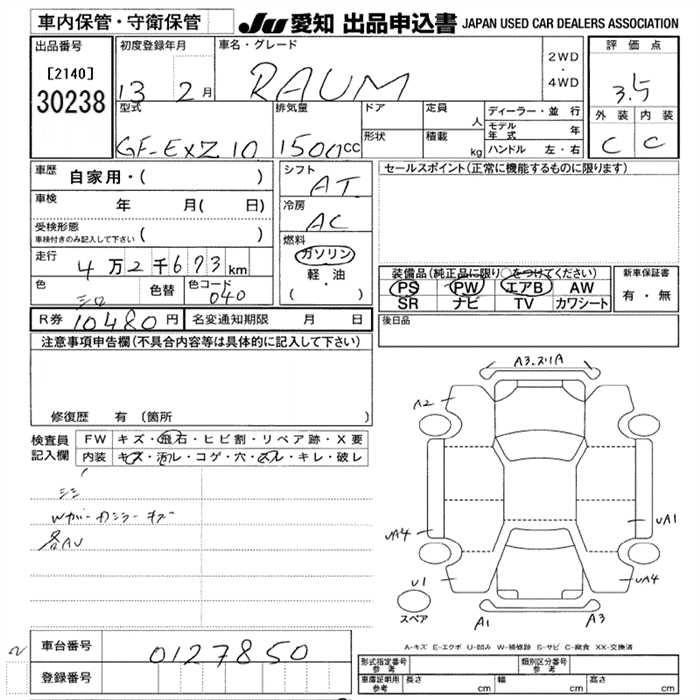 車内保管・守衛保管
JU 愛知 出品申込書 JAPAN USED CAR DEALERS ASSOCIATION
出品番号
[2140]
30238
初度登録年月
13 2月
車名・グレード
RAUM
2WD
・
4WD
評価点
3.5
外装 内装
C C
型式
GF-EXZ10
排気量
1500cc
ドア
形状
定員
人
積載
kg
ディーラー・並行
モデル年式 年
ハンドル 左・右
車歴
自家用・( )
車検
年 月( 日)
受検形態
車検付きのみ記入して下さい ( )
走行
4万2千673km
色
シロ
色替
色コード
040
シフト
AT
冷房
AC
燃料
ガソリン
軽・油
( ・ )
セールスポイント(正常に機能するものに限ります)
装備品(純正品に限り○をつけてください)
PS PW エアB AW
SR ナビ TV カワシート
新車保証書
有・無
R券 10480円
名変通知期限 月 日
後日品
注意事項申告欄(不具合内容等は具体的に記入して下さい)
修復歴 有(箇所
検査員記入欄
FW キズ・飛石・ヒビ割・リペア跡・X要
内装 キズ・汚レ・コゲ・穴・スレ・キレ・破レ
各AU
A3.スリA
A2
UA4
UA1
U1
UA4
A1
A3
スペア
A-キズ E-エクボ U-凹み W-補修跡 S-サビ C-腐食 XX-交換済
車台番号
0127850
登録番号
型式指定番号
参考
類別区分番号
参考
車庫証明用
参考
長さ cm 幅 cm 高さ cm